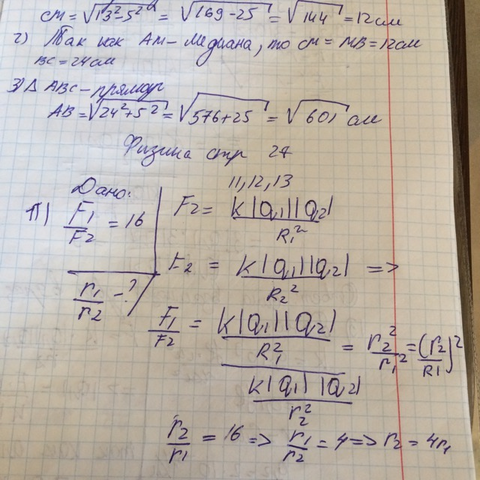 cm = √13²-5² = √169-25 = √144 = 12 см
2) Так как AM - медиана, то CM = MB = 12 см
BC = 24 см
3) Δ ABC - прямоуг
AB = √24²+5² = √576+25 = √601 см
Физика стр 24
11, 12, 13
Дано:
11) F₁/F₂ = 16
r₁/r₂ - ?
F₂ = k|q₁||q₂|/R₁²
F₂ = k|q₁||q₂|/R₂² =>
F₁/F₂ = (k|q₁||q₂|/R₁²)/(k|q₁||q₂|/r₂²) = r₂²/r₁² = (r₂/R₁)²
r₂/r₁ = 16 => r₁/r₂ = 4 => r₂ = 4r₁